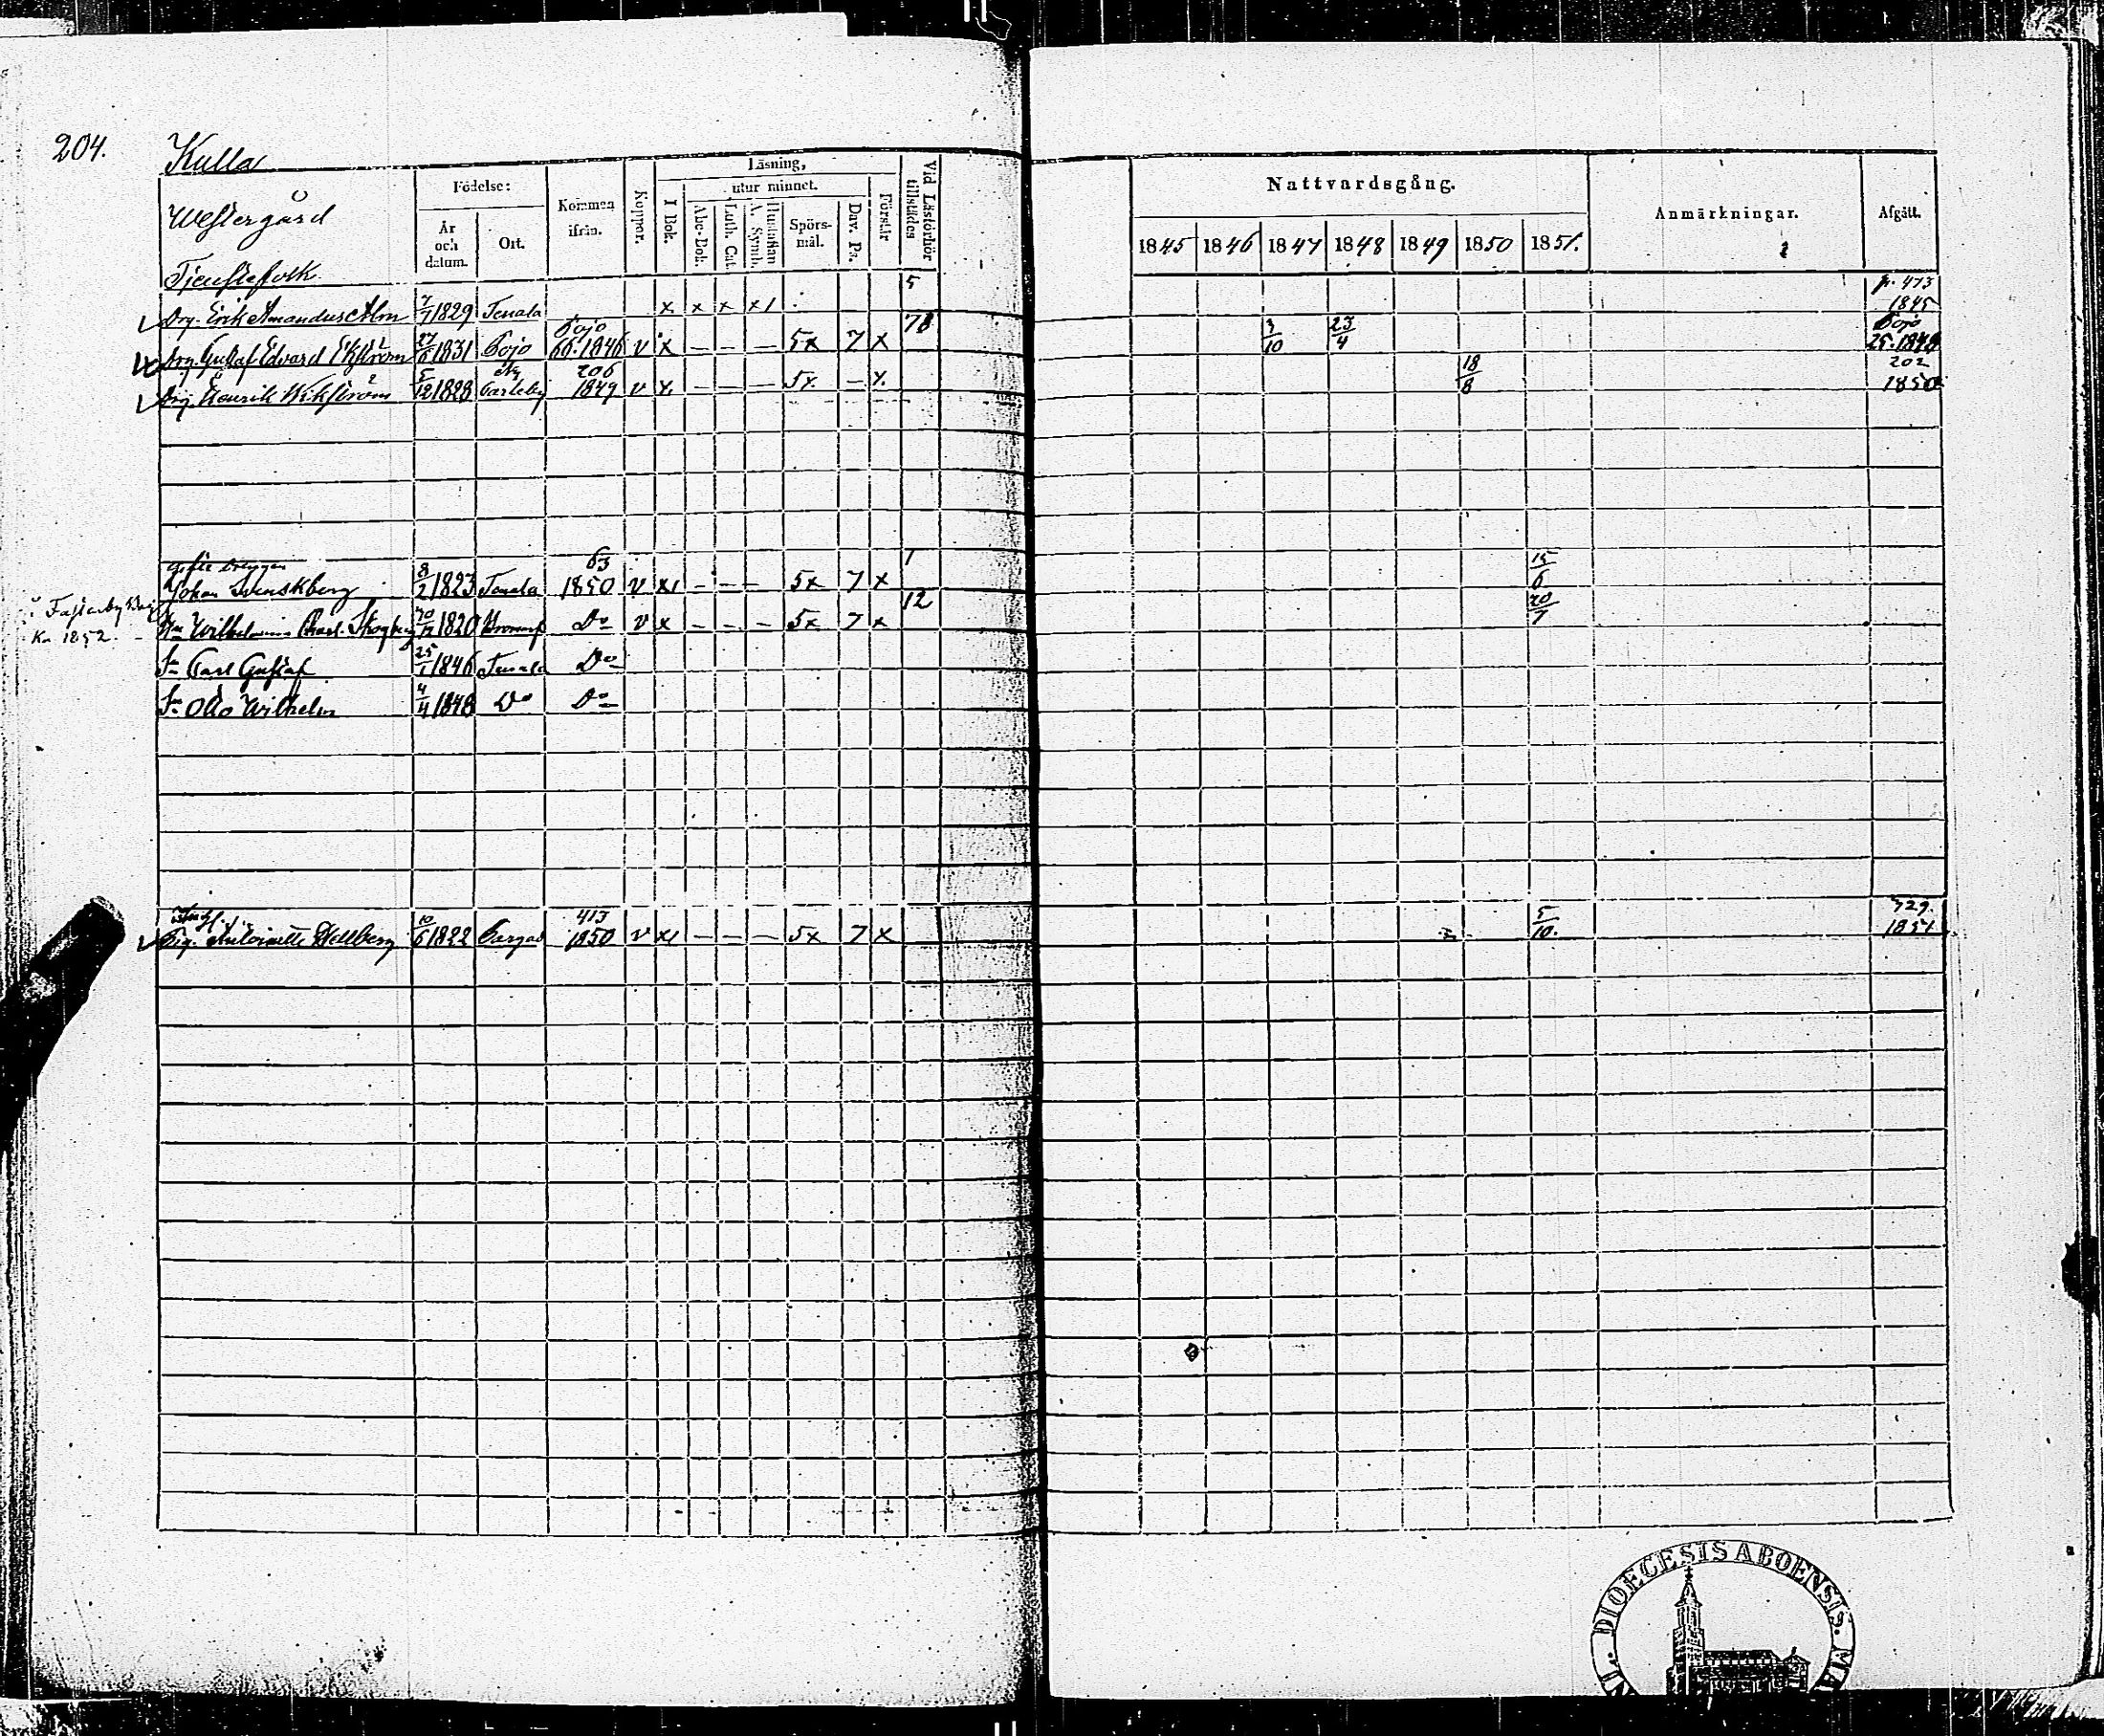 204.
Kulla
Westergård
Tjenstefolk
Födelse:
År och datum.
Ort.
Kommen ifrån.
Koppor.
Läsning,
I Bok.
utur minnet.
Abc-Bok.
Luth. Cat.
Hustaflan A. Symb.
Spörsmål.
Dav. Ps.
Förstår
Vid Läsförhör tillstädes
Nattvardsgång.
1845 1846 1847 1848 1849 1850 1851.
Anmärkningar.
Afgått.
Drg. Erik Amandus Alm 7/1 1829 Tenala x x x x 5 p. 473 1845
Drg. Gustaf Edvard Ekström 27/6 1831 Pojo Pojo 66. 1846 v x – – – 5x 7 x 78 3/10 23/4 Pojo 25. 1848
Drg. Henrik Wikström 5/12 1828 Carleby 206 1849 v x – – – 5x. – x. 18/8 202 1850
Gifte Drengen 63 1
Johan Svenskberg 8/2 1823 Tenala 1850 v x – – – 5x 7 x 15/6
Fasterby
K. 1852.
Hu Wilhelmina Charl. Skogberg 1820 Bromarf Do v x – – – 5x 7 x 12 20/7
Sn Carl Gustaf 25/1 1846 Tenala Do
Sn Otto Wilhelm 4/4 1848 Do Do
Pig. Antoinette Hellberg 10/6 1822 Pargas 413 1850 v x – – – 5x 7 x 5/10. 329. 1851
DIOECESIS ABOENSIS.